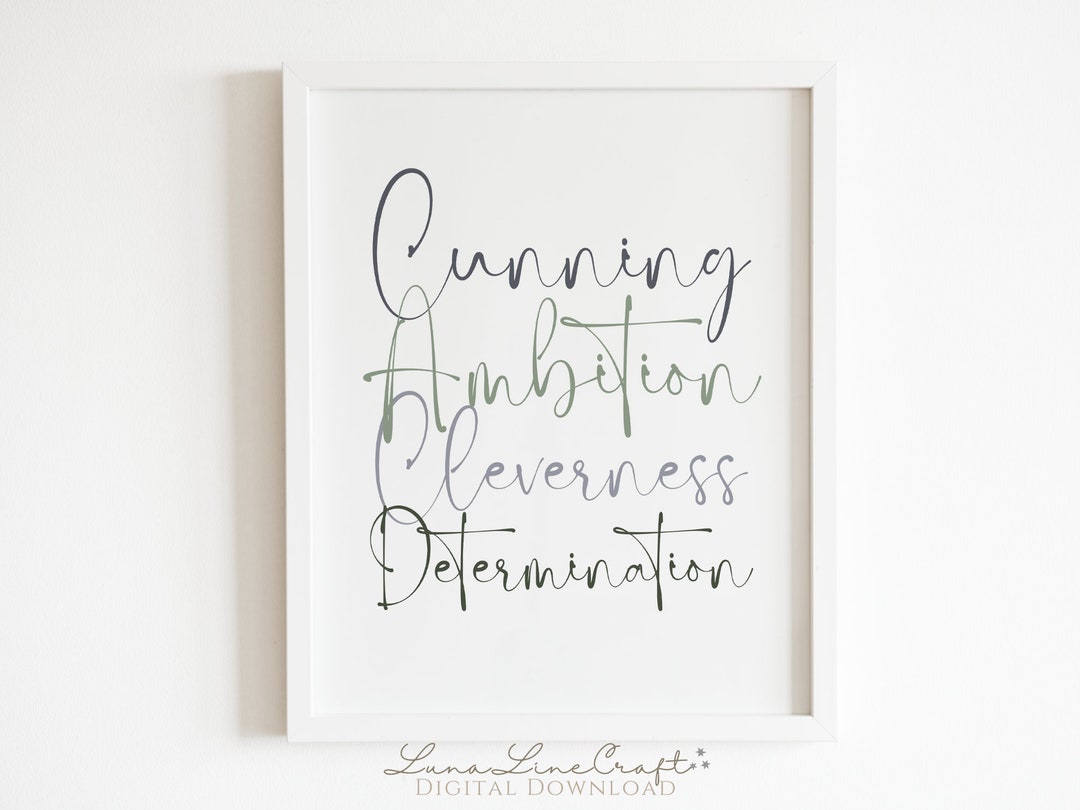 Cunning
Ambition
Cleverness
Determination
LunaLineCraft
Digital Download